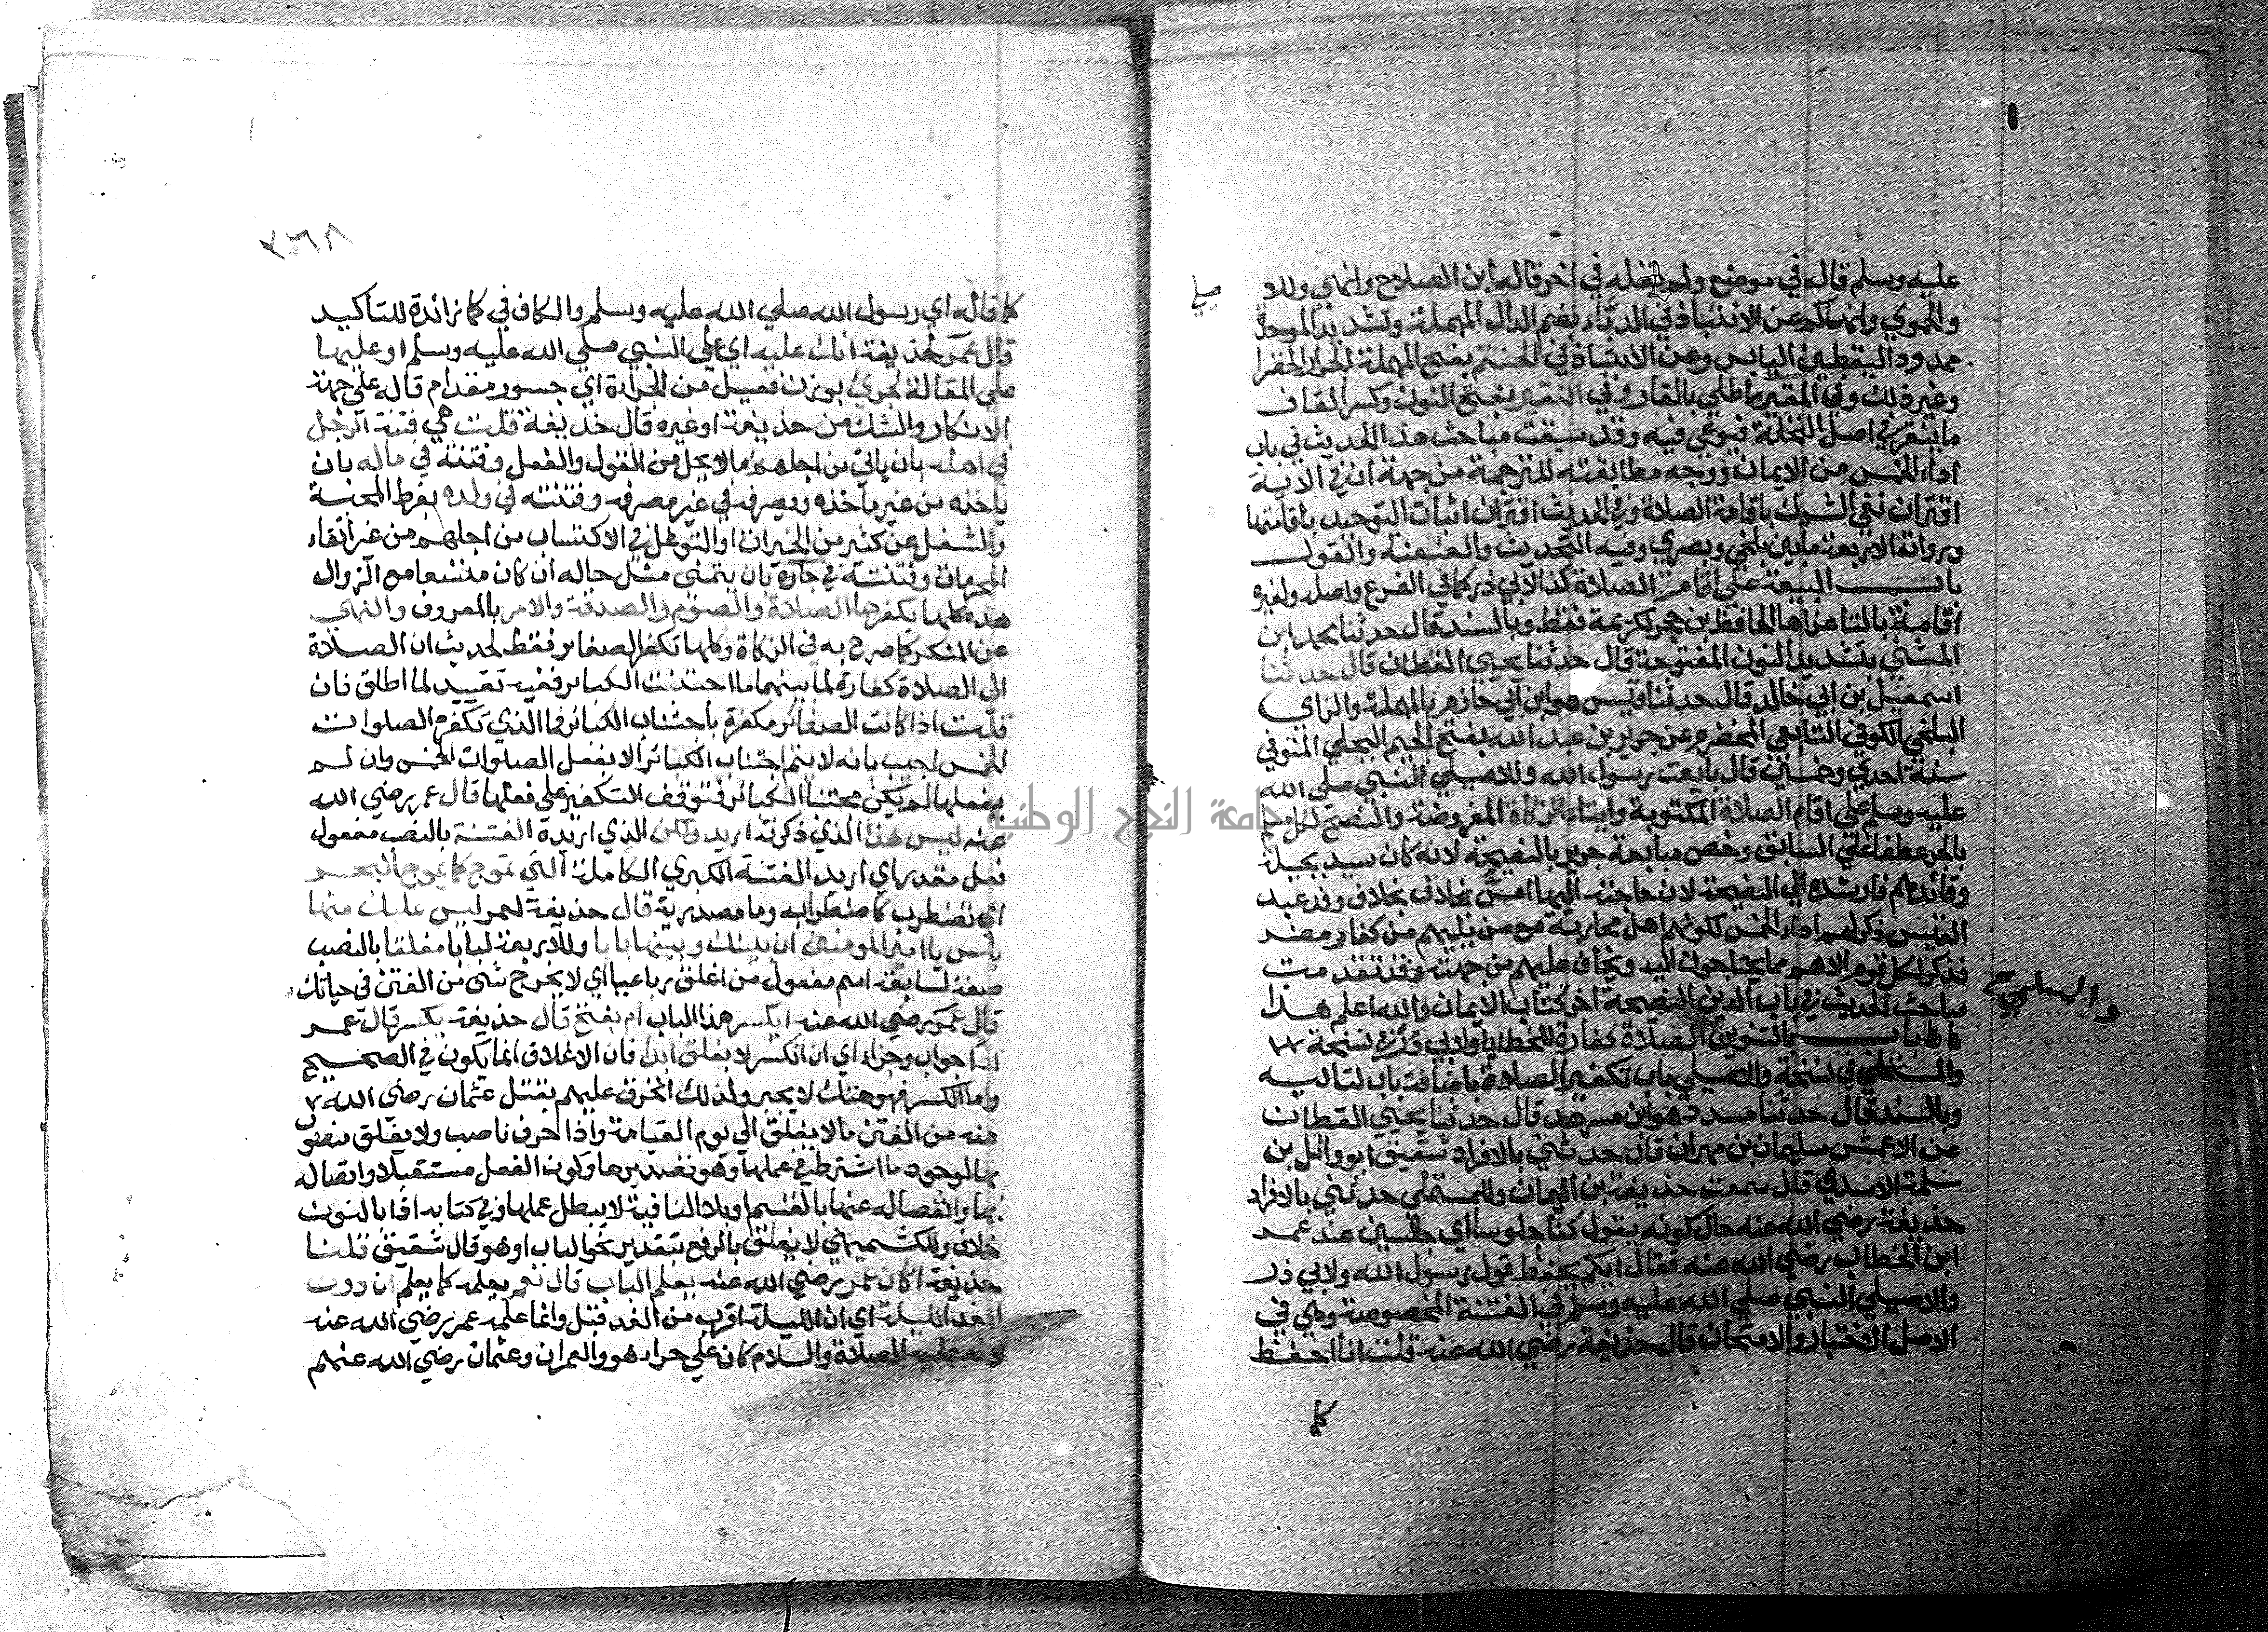 عليه وسلم قاله في موضع ولم يقله في اخر قاله ابن الصلاح وانهي وللا
صيلي
والحموي وانهاكم عن الانتباذ في الدباء بضم الدال المهملة وتشديد الموحدة
ممدودا اليقطين اليابس وعن الانتباذ في الحنتم بفتح المهملة الجرار الخضرا
وغير ذلك وفي المقير ما طلي بالقار وفي النقير بفتح النون وكسر القاف
ما ينقر في اصل النخلة فيوعي فيه وقد سبقت مباحث هذا الحديث في باب
اداء الخمس من الايمان ووجه مطابقته للترجمة من جهة ان في الاية
اقتران نفي الشرك باقامة الصلاة وفي الحديث اقتران اثبات التوحيد باقامتها
ورواته الاربعة ما بين بلخي وبصري وفيه التحديث والعنعنة والقول
باب البيعة علي اقامة الصلاة كذا لابي ذر كما في الفرع واصله ولغيره
اقامة بالتا عزاها الحافظ بن حجر لكريمة فقط وبالسند قال حدثنا محمد ابن
المثني بتشديد النون المفتوحة قال حدثنا يحيي القطان قال حدثنا
اسمعيل بن ابي خالد قال حدثنا قيس هو ابن ابي حازم بالمهملة والزاي
البلخي الكوفي التابعي المخضرم عن جرير بن عبد الله بفتح الجيم البجلي المتوفي
سنة احدي وخمسين قال بايعت رسول الله وللاصيلي النبي صلي الله
عليه وسلم علي اقام الصلاة المكتوبة وايتاء الزكاة المفروضة والنصح لكل مسلم
بالجر عطفا علي السابق وخص مبايعة جرير بالنصيحة لانه كان سيد بجيلة
وقائدهم فارشده الي النصيحة لان حاجته اليها امس بخلاف وفد عبد
القيس ذكر لهم اداء الخمس لكونهم اهل محاربة مع من يليهم من كفار مضر
فذكر لكل قوم الاهم مما يحتاجون اليه ويخاف عليهم من جهته وقد تقدمت
مباحث الحديث في باب الدين النصيحة اخر كتاب الايمان والله اعلم هذا
باب بالتنوين الصلاة كفارة للخطايا ولابي ذر في نسخة
والمستملي في نسخة والاصيلي باب تكفير الصلاة باضافة باب لتاليه
وبالسند قال حدثنا مسدد هو ابن مسرهد قال حدثنا يحيي القطان
عن الاعمش سليمان بن مهران قال حدثني بالافراد شقيق ابو وائل بن
سلمة الاسدي قال سمعت حذيفة بن اليمان وللمستملي حدثني بالافراد
حذيفة رضي الله عنه حال كونه يقول كنا جلوسا اي جالسين عند عمر
ابن الخطاب رضي الله عنه فقال ايكم يحفظ قول رسول الله ولابي ذر
والاصيلي النبي صلي الله عليه وسلم في الفتنة المخصوصة وهي في
الاصل الاختبار والامتحان قال حذيفة رضي الله عنه قلت انا احفظ
كما
كما قاله اي رسول الله صلي الله عليه وسلم والكاف في كما زائدة للتاكيد
قال عمر لحذيفة انك عليه اي علي النبي صلي الله عليه وسلم او عليها
علي المقالة لجريء بوزن فعيل من الجراءة اي جسور مقدام قاله علي جهة
الانكار والشك من حذيفة او غيره قال حذيفة قلت هي فتنة الرجل
في اهله بان ياتي من اجلهم ما لا يحل من القول والفعل وفتنته في ماله بان
ياخذه من غير ماخذه ويصرفه في غير مصرفه وفتنته في ولده بفرط المحبة
والشغل عن كثير من الخيرات او التوغل في الاكتساب من اجلهم من غير اتقاء
المحرمات وفتنته في جاره بان يتمني مثل حاله ان كان متسعا مع الزوال
هذه كلها يكفرها الصلاة والصوم والصدقة والامر بالمعروف والنهي
عن المنكر كما صرح به في الزكاة وكلها تكفر الصغائر فقط لحديث ان الصلاة
الي الصلاة كفارة لما بينهما ما اجتنبت الكبائر ففيه تقييد لما اطلق فان
قلت اذا كانت الصغائر مكفرة باجتناب الكبائر فما الذي تكفره الصلوات
الخمس اجيب بانه لا يتم اجتناب الكبائر الا بفعل الصلوات الخمس وان لم
يفعلها لم يكن مجتنبا الكبائر فتوقف التكفير علي فعلها قال عمر رضي الله
عنه ليس هذا الذي ذكرته اريد ولكن الذي اريده الفتنة بالنصب مفعول
فعل مقدر اي اريد الفتنة الكبري الكاملة التي تموج كما يموج البحر
اي تضطرب كاضطرابه وما مصدرية قال حذيفة لعمر ليس عليك منها
باس يا امير المومنين ان بينك وبينها بابا وللاربعة لبابا مغلقا بالنصب
صفة لسابقه اسم مفعول من اغلق رباعيا اي لا يخرج شي من الفتن في حياتك
قال عمر رضي الله عنه ايكسر هذا الباب ام يفتح قال حذيفة يكسر قال عمر
اذا جواب وجزاء اي ان انكسر لا يغلق ابدا فان الاغلاق انما يكون في الصحيح
واما الكسر فهو هتك لا يجبر ولذلك انخرق عليهم بقتل عثمان رضي الله
عنه من الفتن ما لا يغلق الي يوم القيامة واذا حرف ناصب ولا يغلق منصوب
بها لوجود ما اشترط في عملها وهو تصديرها وكون الفعل مستقبلا واتصاله
بها وانفصاله عنها بالقسم او بلا النافية لا يبطل عملها وفي كتابه اذا بالنون
خلاف وللكشميهني لا يغلق بالرفع بتقدير نحو الباب او هو قال شقيق قلنا
حذيفة اكان عمر رضي الله عنه يعلم الباب قال نعم يعلمه كما يعلم ان دون
الغد الليلة اي ان الليلة اقرب من الغد قيل وانما علمه عمر رضي الله عنه
لانه عليه الصلاة والسلام كان علي حراء هو والعمران وعثمان رضي الله عنهم
جامعة النجاح الوطنية